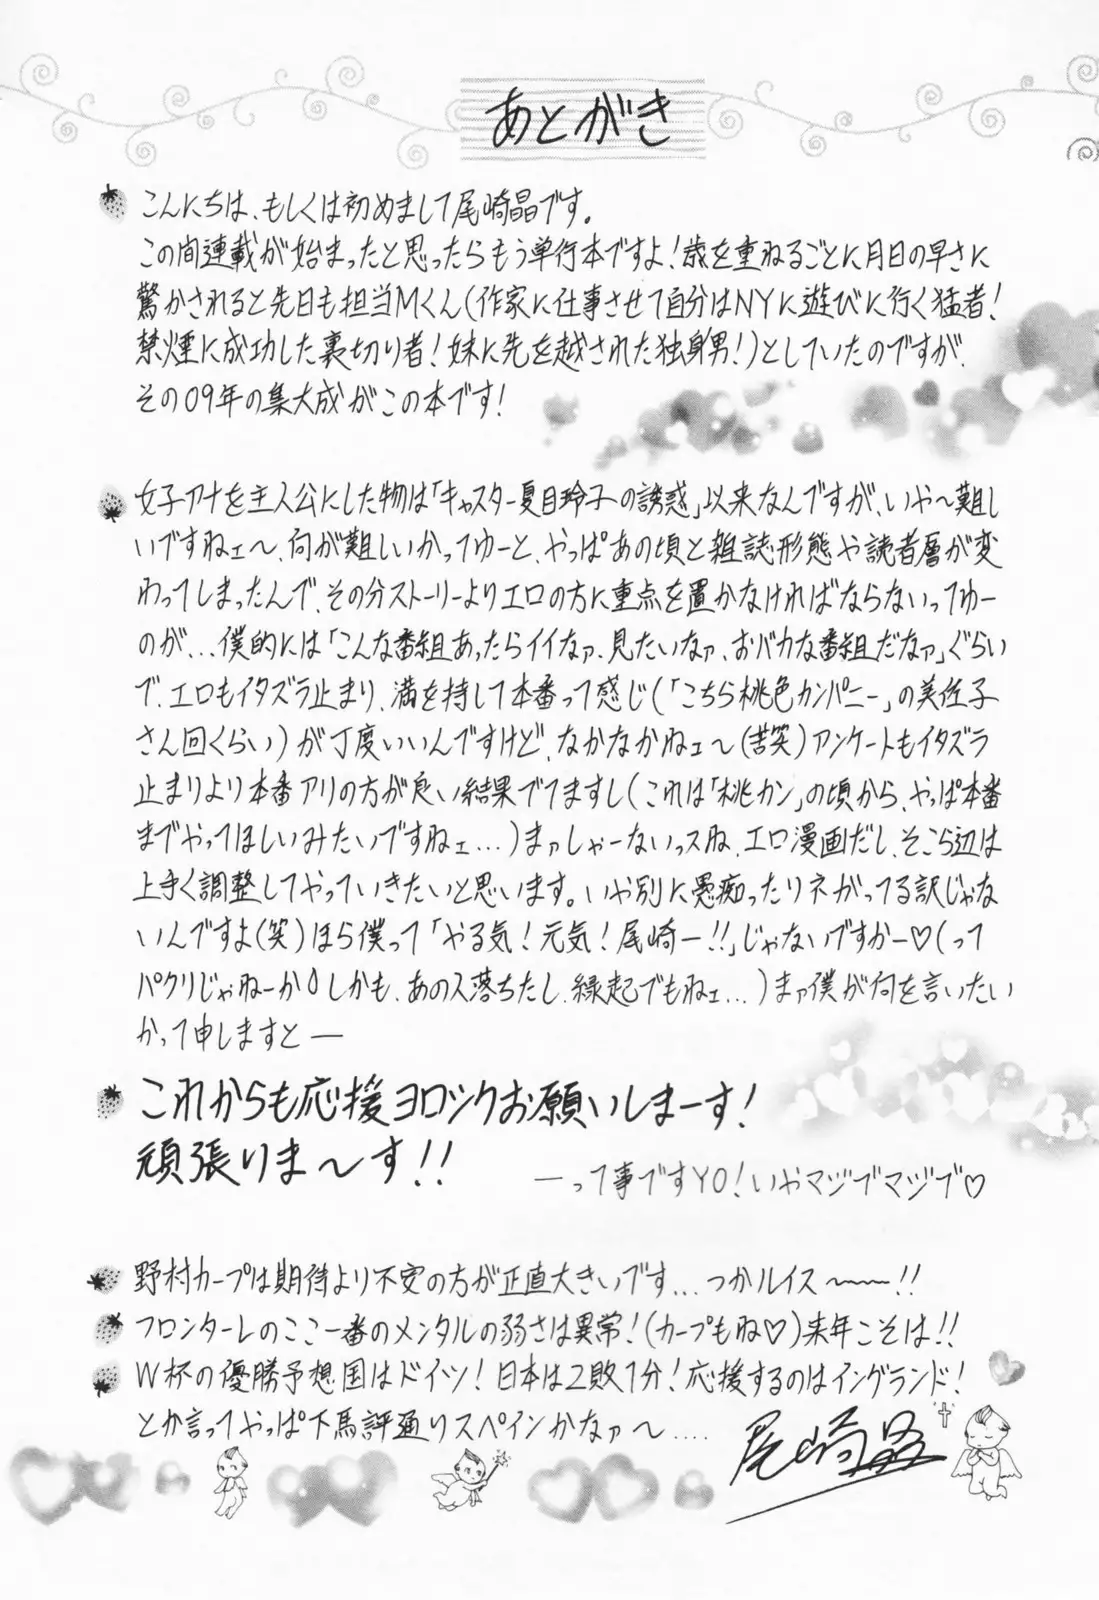 あとがき
こんにちは、もしくは初めまして尾崎晶です。
この間連載が始まったと思ったらもう単行本ですよ！歳を重ねるごとに月日の早さに
驚かされると先日も担当Mくん(作家に仕事させて自分はNYに遊びに行く猛者！
禁煙に成功した裏切り者！妹に先を越された独身男！)としていたのですが、
その09年の集大成がこの本です！
女子アナを主人公にした物は「キャスター夏目玲子の誘惑」以来なんですが、いや〜難し
いですねェ〜、何が難しいかってゆーと、やっぱあの頃と雑誌形態や読者層が変
わってしまったんで、その分ストーリーよりエロの方に重点を置かなければならないってゆー
のが...僕的には「こんな番組あったらイイなァ、見たいなァ、おバカな番組だなァ」ぐらい
で、エロもイタズラ止まり、満を持して本番って感じ(「こちら桃色カンパニー」の美佐子
さん回くらい)が丁度いいんですけど、なかなかねェ〜(苦笑)アンケートもイタズラ
止まりより本番アリの方が良い結果でてますし(これは「桃カン」の頃から、やっぱ本番
までやってほしいみたいですねェ...)まァしゃーないっスね、エロ漫画だし、そこら辺は
上手く調整してやっていきたいと思います。いや別に愚痴ったりネガってる訳じゃな
いんですよ(笑)ほら僕って「やる気！元気！尾崎ー!!」じゃないですかー♡(って
パクリじゃねーか しかも、あの人落ちたし、縁起でもねェ...)まァ僕が何を言いたい
かって申しますと―
これからも応援ヨロシクお願いしまーす！
頑張りま〜す!!
―って事ですYO！いやマジブマジブ♡
野村カープは期待より不安の方が正直大きいです...つかルイス〜〜!!
フロンターレのここ一番のメンタルの弱さは異常！(カープもね♡)来年こそは!!
W杯の優勝予想国はドイツ！日本は2敗1分！応援するのはイングランド！
とか言ってやっぱ下馬評通りスペインかなァ〜....
尾崎晶